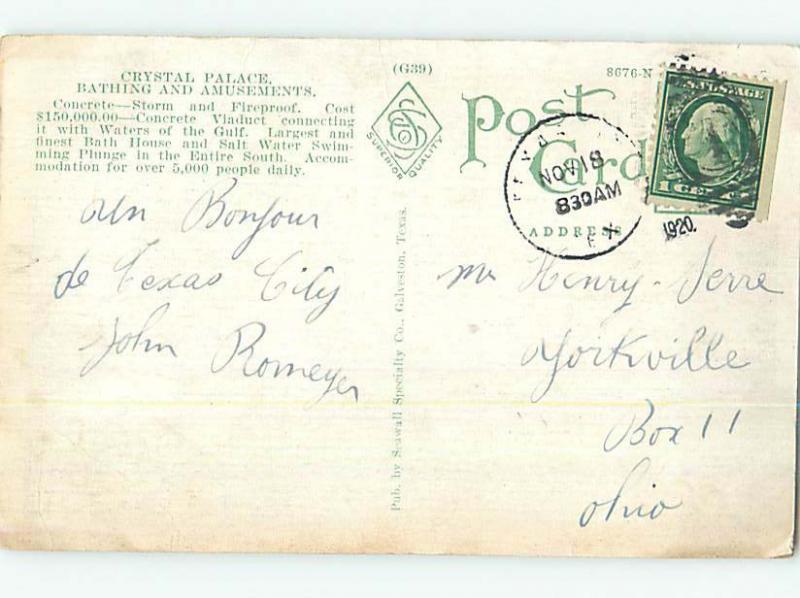 CRYSTAL PALACE,
BATHING AND AMUSEMENTS.
Concrete—Storm and Fireproof. Cost
$150,000.00—Concrete Viaduct connecting
it with Waters of the Gulf. Largest and
finest Bath House and Salt Water Swim-
ming Plunge in the Entire South. Accom-
modation for over 5,000 people daily.
(G39)
8676-N
SUPERIOR QUALITY
Post
Card
ADDRESS
NOV 18
830AM
1920.
U.S. POSTAGE
1 CENT
Un Bonjour
de Texas City
John Romeyer
Pub. by Seawall Specialty Co., Galveston, Texas.
Mr Henry Serre
Yorkville
Box 11
Ohio